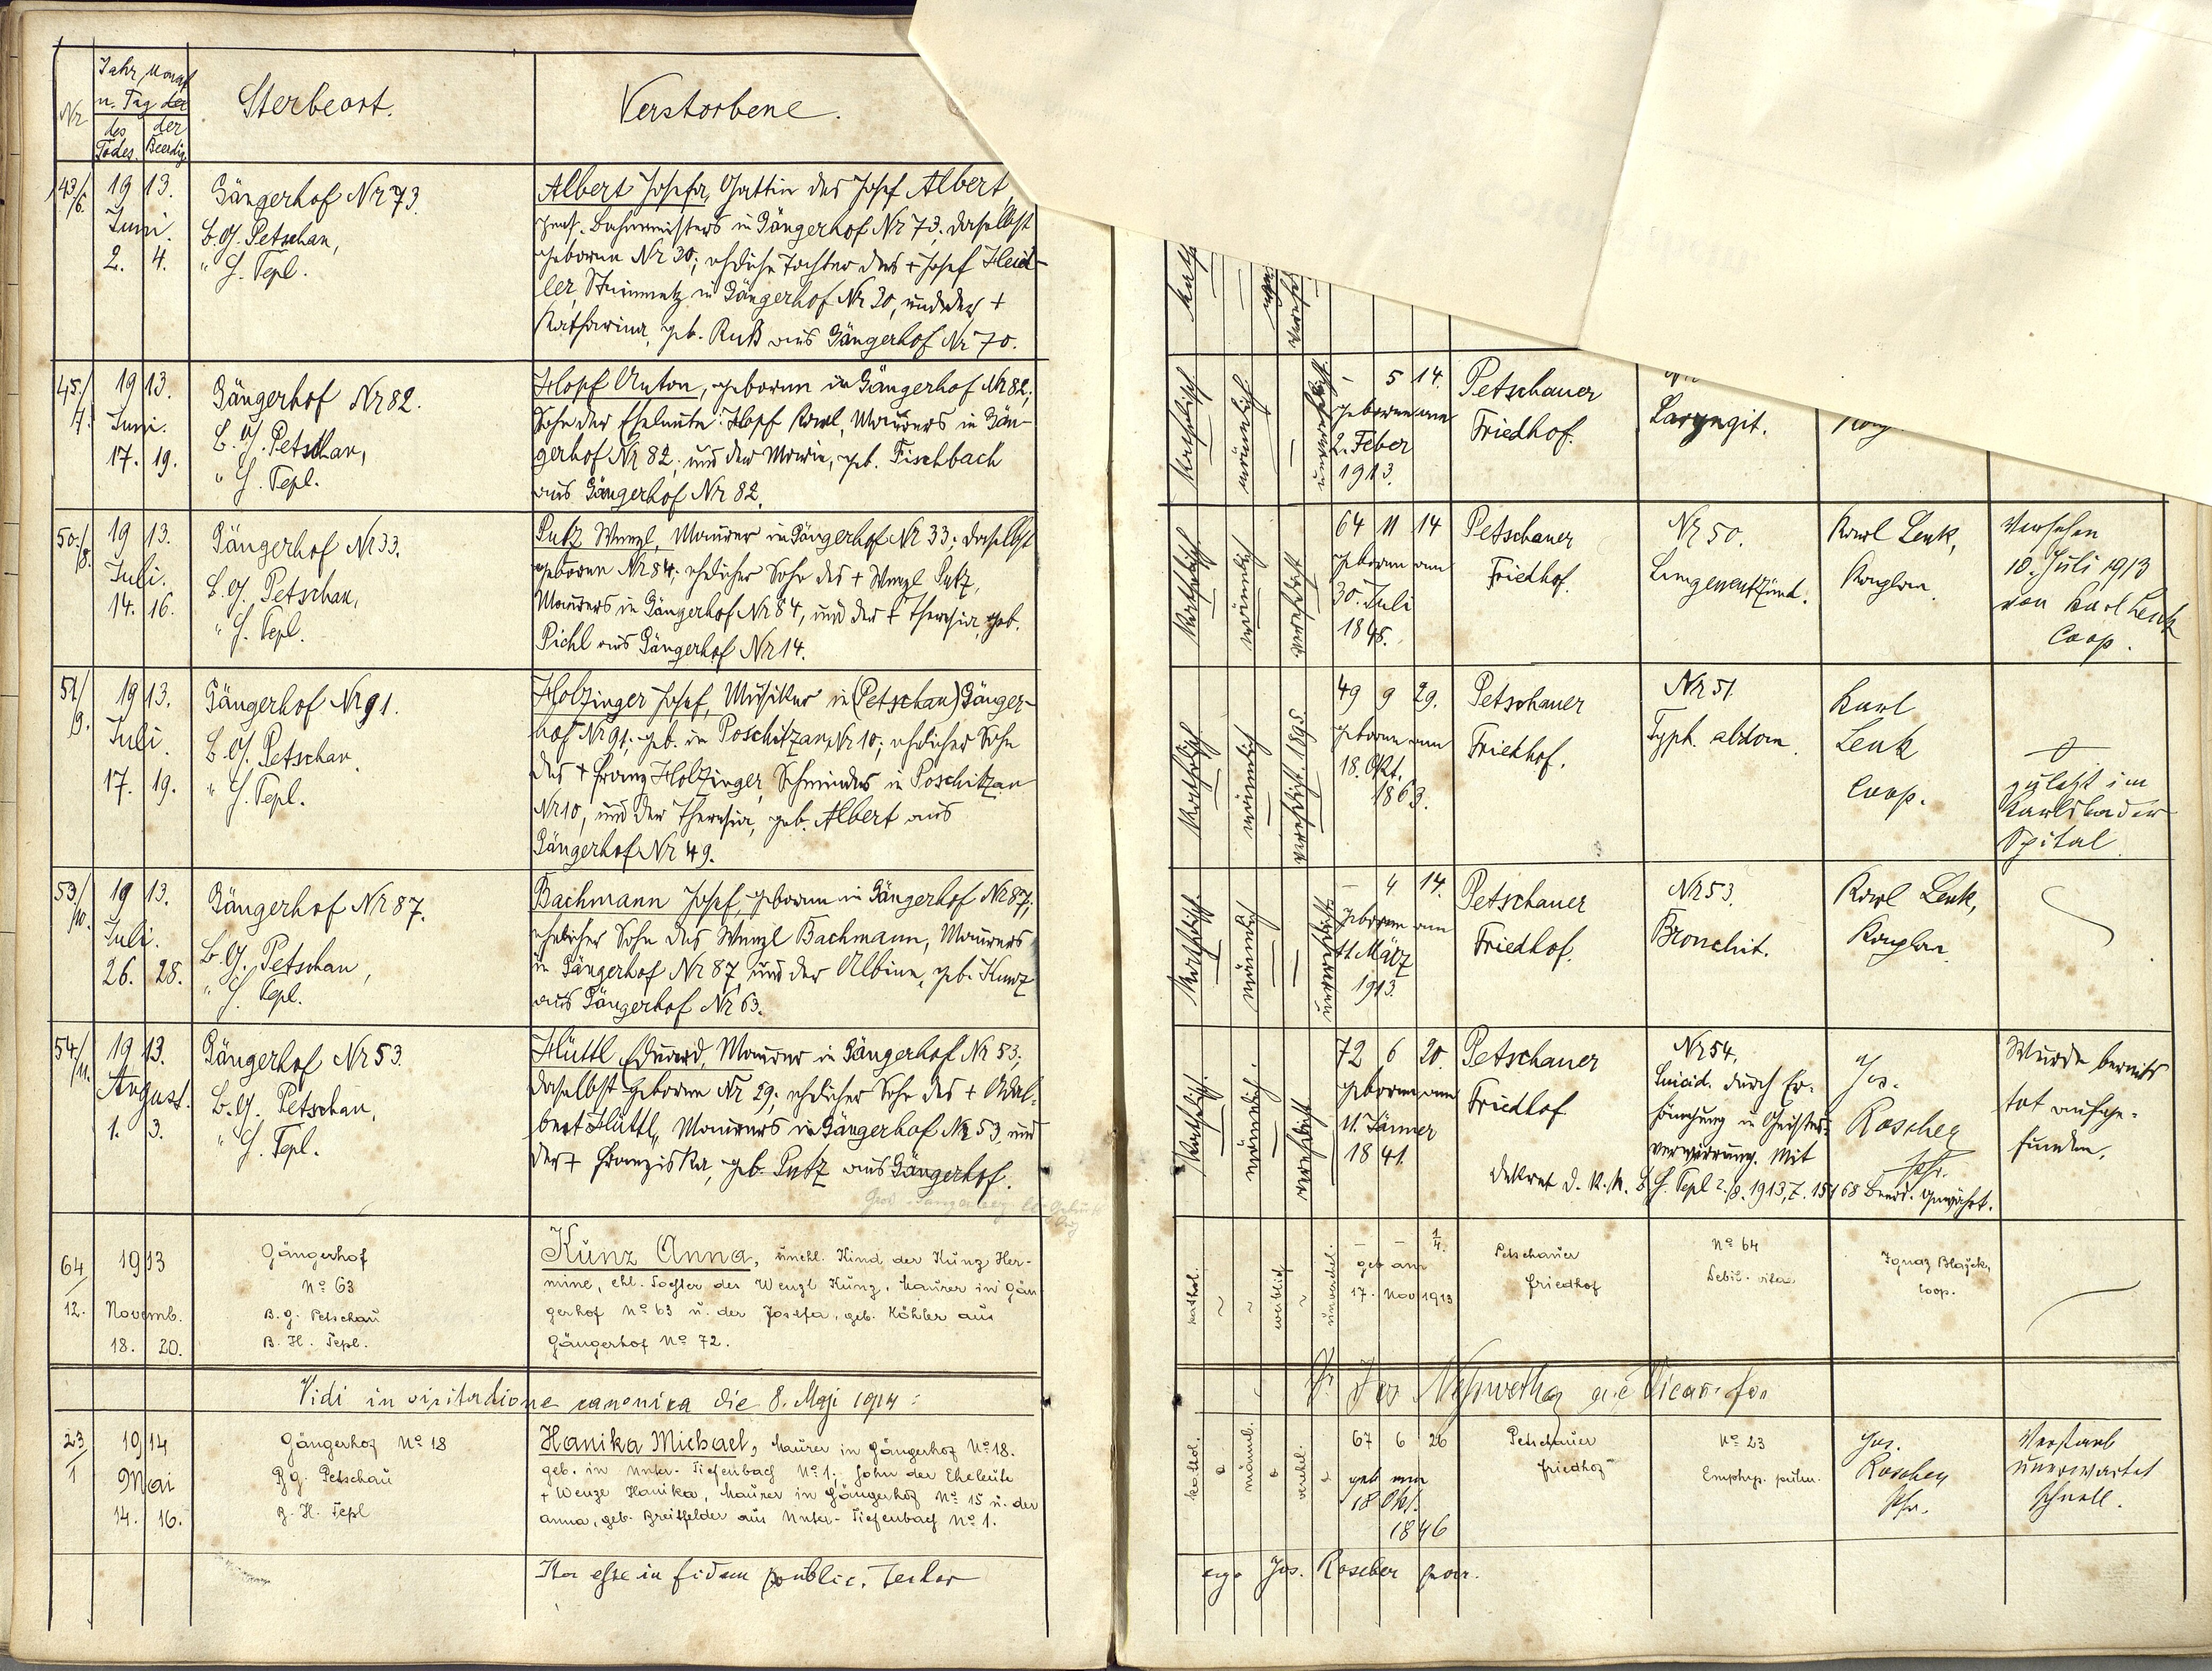 Nr
Jahr, Monat
u. Tag der
des Todes.
der Beerdig.
Sterbeort.
Verstorbene.
43/6.
1913.
Juni.
2. 4.
Gängerhof Nr 73.
B. G. Petschau,
" H. Tepl.
Albert Josefa, Gattin des Josef Albert,
pens. Bahnmeisters in Gängerhof Nr 73, daselbst
geboren Nr 30; eheliche Tochter des + Josef Heid-
ler, Steinmetz in Gängerhof Nr 30, und der +
Katharina, geb. Ruß aus Gängerhof Nr 70.
45./7.
1913.
Juni.
17. 19.
Gängerhof Nr 82.
B. G. Petschau,
" H. Tepl.
Hopf Anton, geboren in Gängerhof Nr 82;
Sohn der Eheleute: Hopf Karl, Maurers in Gän-
gerhof Nr 82, und der Marie, geb. Fischbach
aus Gängerhof Nr 82.
- 5 14.
geboren am
2. Feber
1913.
katholisch
männlich
unverehelicht
Petschauer
Friedhof.
Laryngit.
50./8.
1913.
Juli.
14. 16.
Gängerhof Nr 33.
B. G. Petschau,
" H. Tepl.
Putz Wenzl, Maurer in Gängerhof Nr 33; daselbst
geboren Nr 84; ehelicher Sohn des + Wenzl Putz,
Maurers in Gängerhof Nr 84, und der + Theresia, geb.
Pichl aus Gängerhof Nr 14.
katholisch
männlich
verehelicht
64 11 14
geboren am
30. Juli
1848.
Petschauer
Friedhof.
Nr 50.
Lungenentzünd.
Karl Lenk,
Kaplan.
Versehen
10. Juli 1913
von Karl Lenk
Coop.
51/9.
1913.
Juli.
17. 19.
Gängerhof Nr 91.
B. G. Petschau,
" H. Tepl.
Holzinger Josef, Musiker in (Petschau) Gänger-
hof Nr 91; geb. in Poschitzau Nr 10; ehelicher Sohn
des + Franz Holzinger, Schneiders in Poschitzau
Nr 10, und der Theresia, geb. Albert aus
Gängerhof Nr 49.
katholisch
männlich
verehelicht. 1895.
49 9 29.
geboren am
18. Okt.
1863.
Petschauer
Friedhof.
Nr 51.
Typh. abdom.
Karl
Lenk
Coop.
zuletzt im
Karlsbader
Spital.
53/10.
1913.
Juli.
26. 28.
Gängerhof Nr 87.
B. G. Petschau,
" H. Tepl.
Bachmann Josef, geboren in Gängerhof Nr 87;
ehelicher Sohn des Wenzl Bachmann, Maurers
in Gängerhof Nr 87, und der Albine, geb. Kunz
aus Gängerhof Nr 63.
katholisch
männlich
unverehelicht
- 4 14.
geboren am
11. März
1913.
Petschauer
Friedhof.
Nr 53.
Bronchit.
Karl Lenk,
Kaplan.
54/11.
1913.
August.
1. 3.
Gängerhof Nr 53.
B. G. Petschau,
" H. Tepl.
Hüttl Eduard, Maurer in Gängerhof Nr 53;
daselbst geboren Nr 29; ehelicher Sohn des + Adal-
bert Hüttl, Maurers in Gängerhof Nr 53 und
der + Franziska, geb. Putz aus Gängerhof.
katholisch
männlich.
verehelicht
72 6 20.
geboren am
11. Jänner
1841.
Petschauer
Friedhof
Nr 54.
Suicid. durch Er-
hängung in Geistes-
verwirrung. Mit
Dekret d. k. k. B. H. Tepl 2./8. 1913, Z. 15168 Beerd. gewährt.
Jos.
Roscher
Pfr.
Wurde bereits
tot aufge-
funden.
64/12.
1913
Novemb.
18. 20.
Gängerhof
No 63
B. G. Petschau
B. H. Tepl.
Kunz Anna, unehl. Kind der Kunz Her-
mine, ehl. Tochter des Wenzl Kunz, Maurer in Gän
gerhof No 63 u. der Josefa, geb. Köhler aus
Gängerhof No 72.
kathol.
weiblich
unverehel.
- - 1/4.
geb am
17. Nov 1913
Petschauer
Friedhof
No 64
Debil. vitae
Ignaz Blajek,
coop.
Vidi in visitatione canonica die 8. Maji 1914:
23/1
1914
Mai
14. 16.
Gängerhof No 18
B. G. Petschau
B. H. Tepl
Hanika Michael, Maurer in Gängerhof No 18.
geb. in Unter-Tiefenbach No 1; Sohn der Eheleute
+ Wenzl Hanika, Maurer in Gängerhof No 15 u. der
Anna, geb. Breitfelder aus Unter-Tiefenbach No 1.
kathol.
männl.
verehel.
67 6 26
geb am
18 Okt.
1846
Petschauer
Friedhof
No 23
Emphys. pulm.
Jos.
Roscher
Pfr.
Verstarb
unerwartet
schnell.
Ita esse in fidem public. testor
ego Jos. Roscher par.